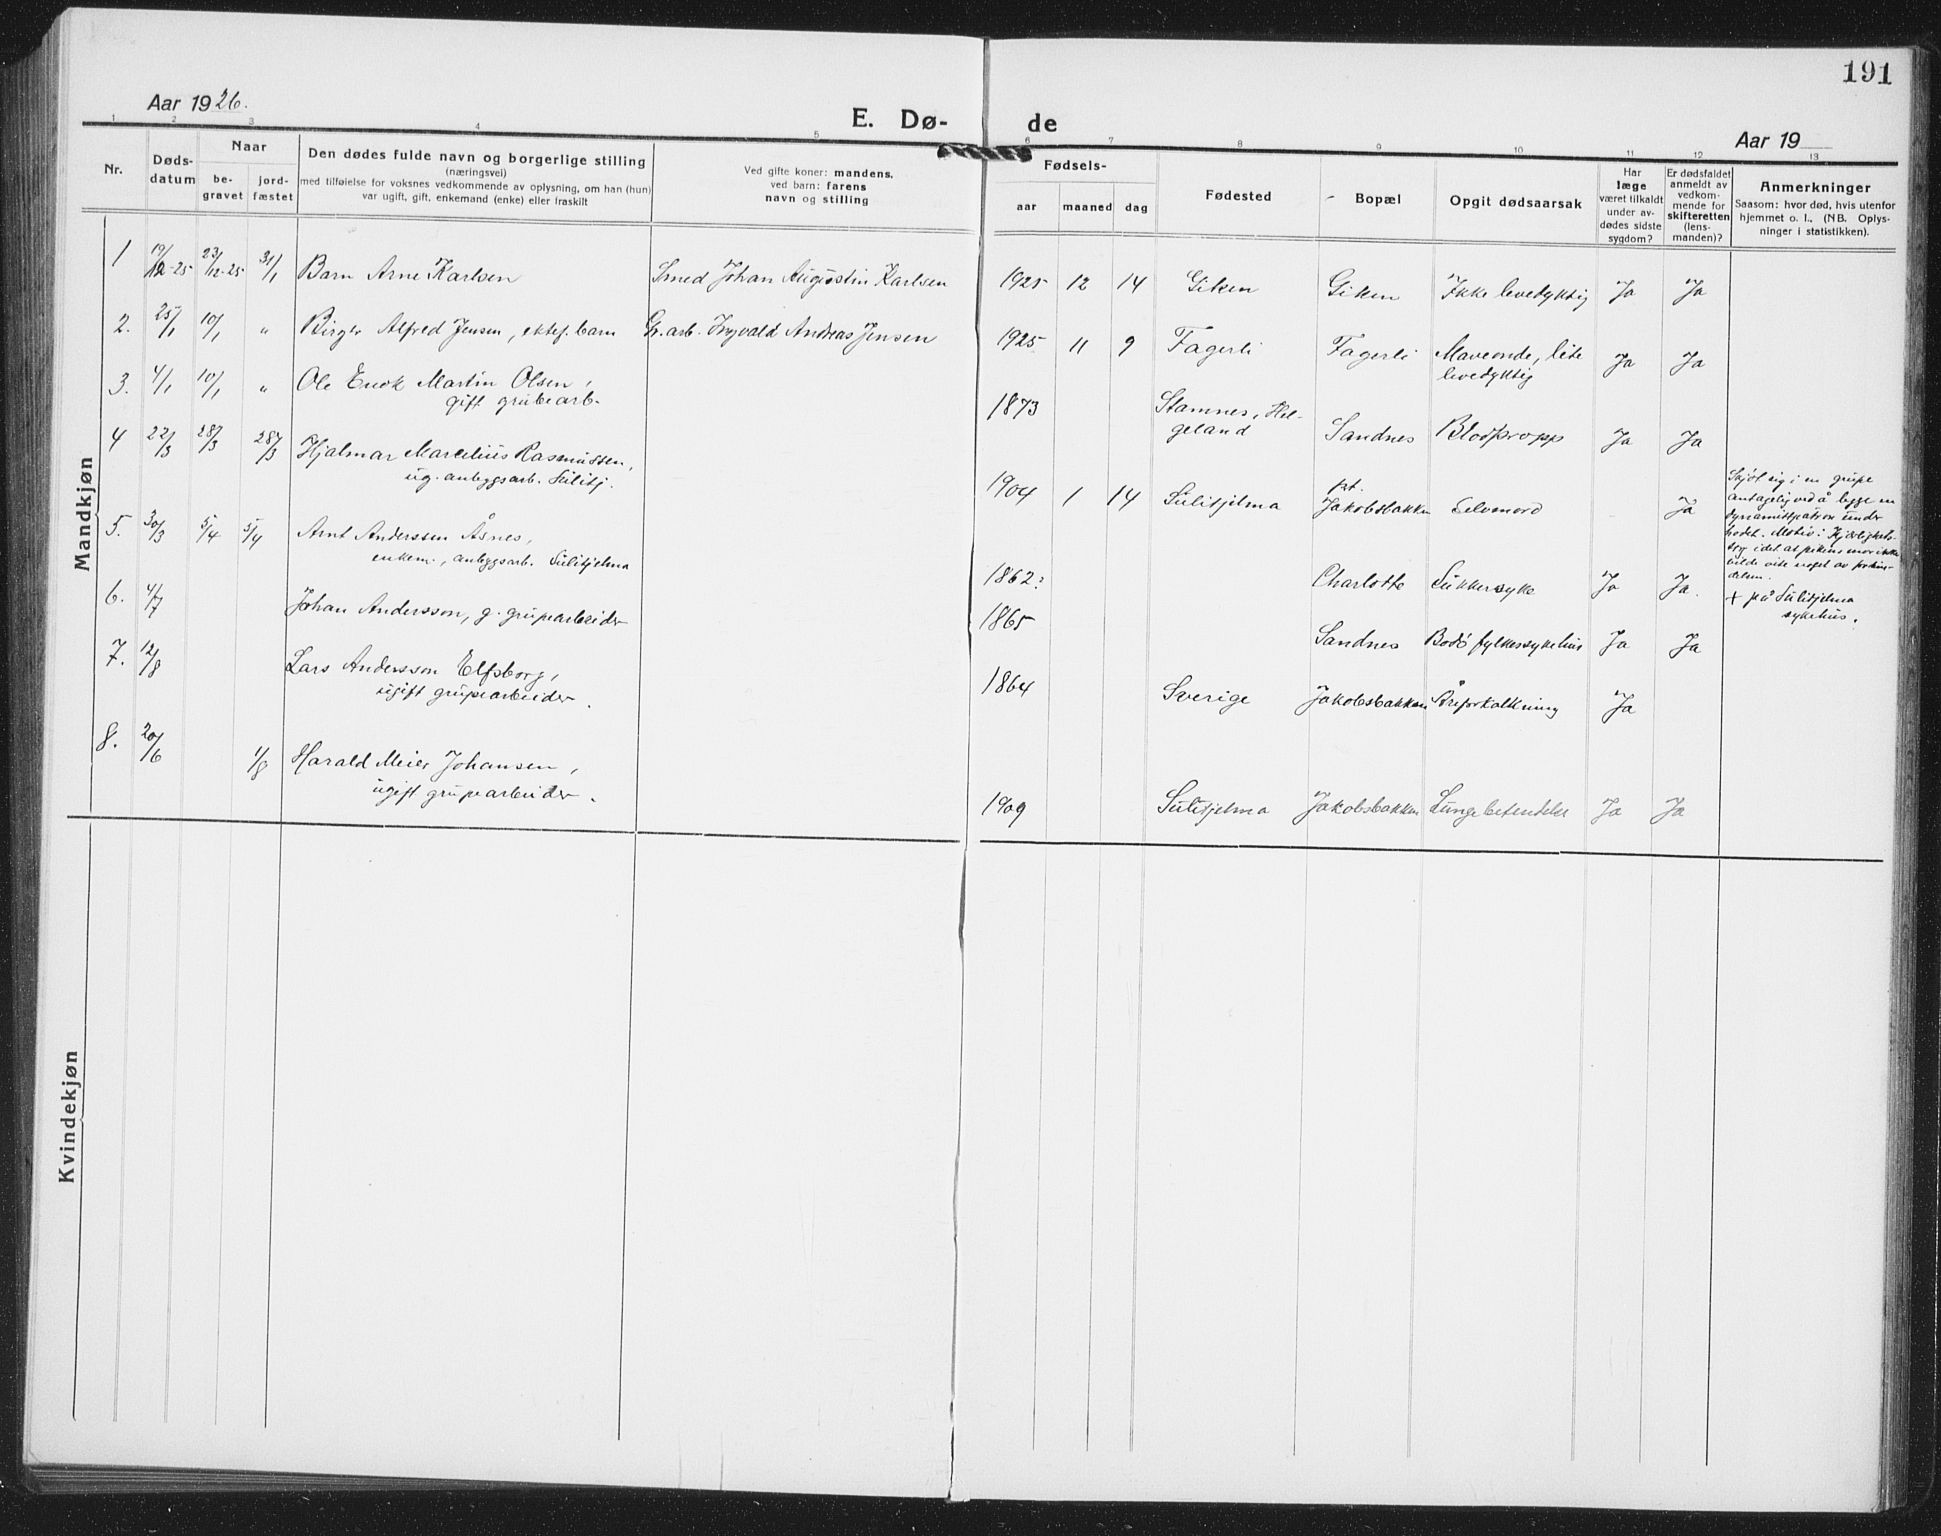 191
Aar 1926.
E. Dø-
de
Aar 19
1 2 3 4 5 6 7 8 9 10 11 12 13
Nr.
Døds-
datum
Naar
be-
gravet
jord-
fæstet
Den dødes fulde navn og borgerlige stilling
(næringsvei)
med tilføielse for voksnes vedkommende av oplysning, om han (hun)
var ugift, gift, enkemand (enke) eller fraskilt
Ved gifte koner: mandens,
ved barn: farens
navn og stilling
Fødsels-
aar
maaned
dag
Fødested
Bopæl
Opgit dødsaarsak
Har
læge
været tilkaldt
under av-
dødes sidste
sygdom?
Er dødsfaldet
anmeldt av
vedkom-
mende for
skifteretten
(lens-
manden)?
Anmerkninger
Saasom: hvor død, hvis utenfor
hjemmet o. l., (NB. Oplys-
ninger i statistikken).
Mandkjøn
1 19/12-25 23/12-25 31/1 Barn Arne Karlsen Smed Johan Augustin Karlsen 1925 12 14 Giken Giken Ikke levedyktig Ja Ja
2. 25/1 10/1 " Birger Alfred Jensen, ektef. barn Gr. arb. Ingvald Andreas Jensen 1925 11 9 Fagerli Fagerli Maveonde, lite
levedyktig Ja Ja
3. 4/1 10/1 " Ole Enok Martin Olsen,
gift grubearb. 1873 Stamnes, Hel-
geland Sandnes Blodpropp Ja Ja
4 22/3 28/3 28/3 Hjalmar Marcelius Rasmussen,
ug. anleggsarb. Sulitj. 1904 1 14 Sulitjelma pt.
Jakobsbakken Selvmord Ja
Skjøt sig i en grupe
antagelig ved å legge en
dynamitpatron under
hodet. Motiv: Kjærlighets-
sorg idet at pikens mor ikke
vilde vite noget av forbin-
delsen.
5. 30/3 5/4 5/4 Arnt Anderssen Åsnes,
enkem., anleggsarb. Sulitjelma 1862? Charlotte Sukkersyke Ja Ja.
+ på Sulitjelma
sykehus.
6. 4/7 Johan Andersson, g. grupearbeider 1865 Sandnes Bodø fylkessykehus Ja Ja
7. 12/8 Lars Andersson Elfsborg,
ugift grupearbeider. 1864 Sverige Jakobsbakken Åreforkalkning Ja
8. 20/6 1/8 Harald Meier Johansen,
ugift grupearbeider. 1909 Sulitjelma Jakobsbakken Lungebetendelse Ja Ja
Kvindekjøn